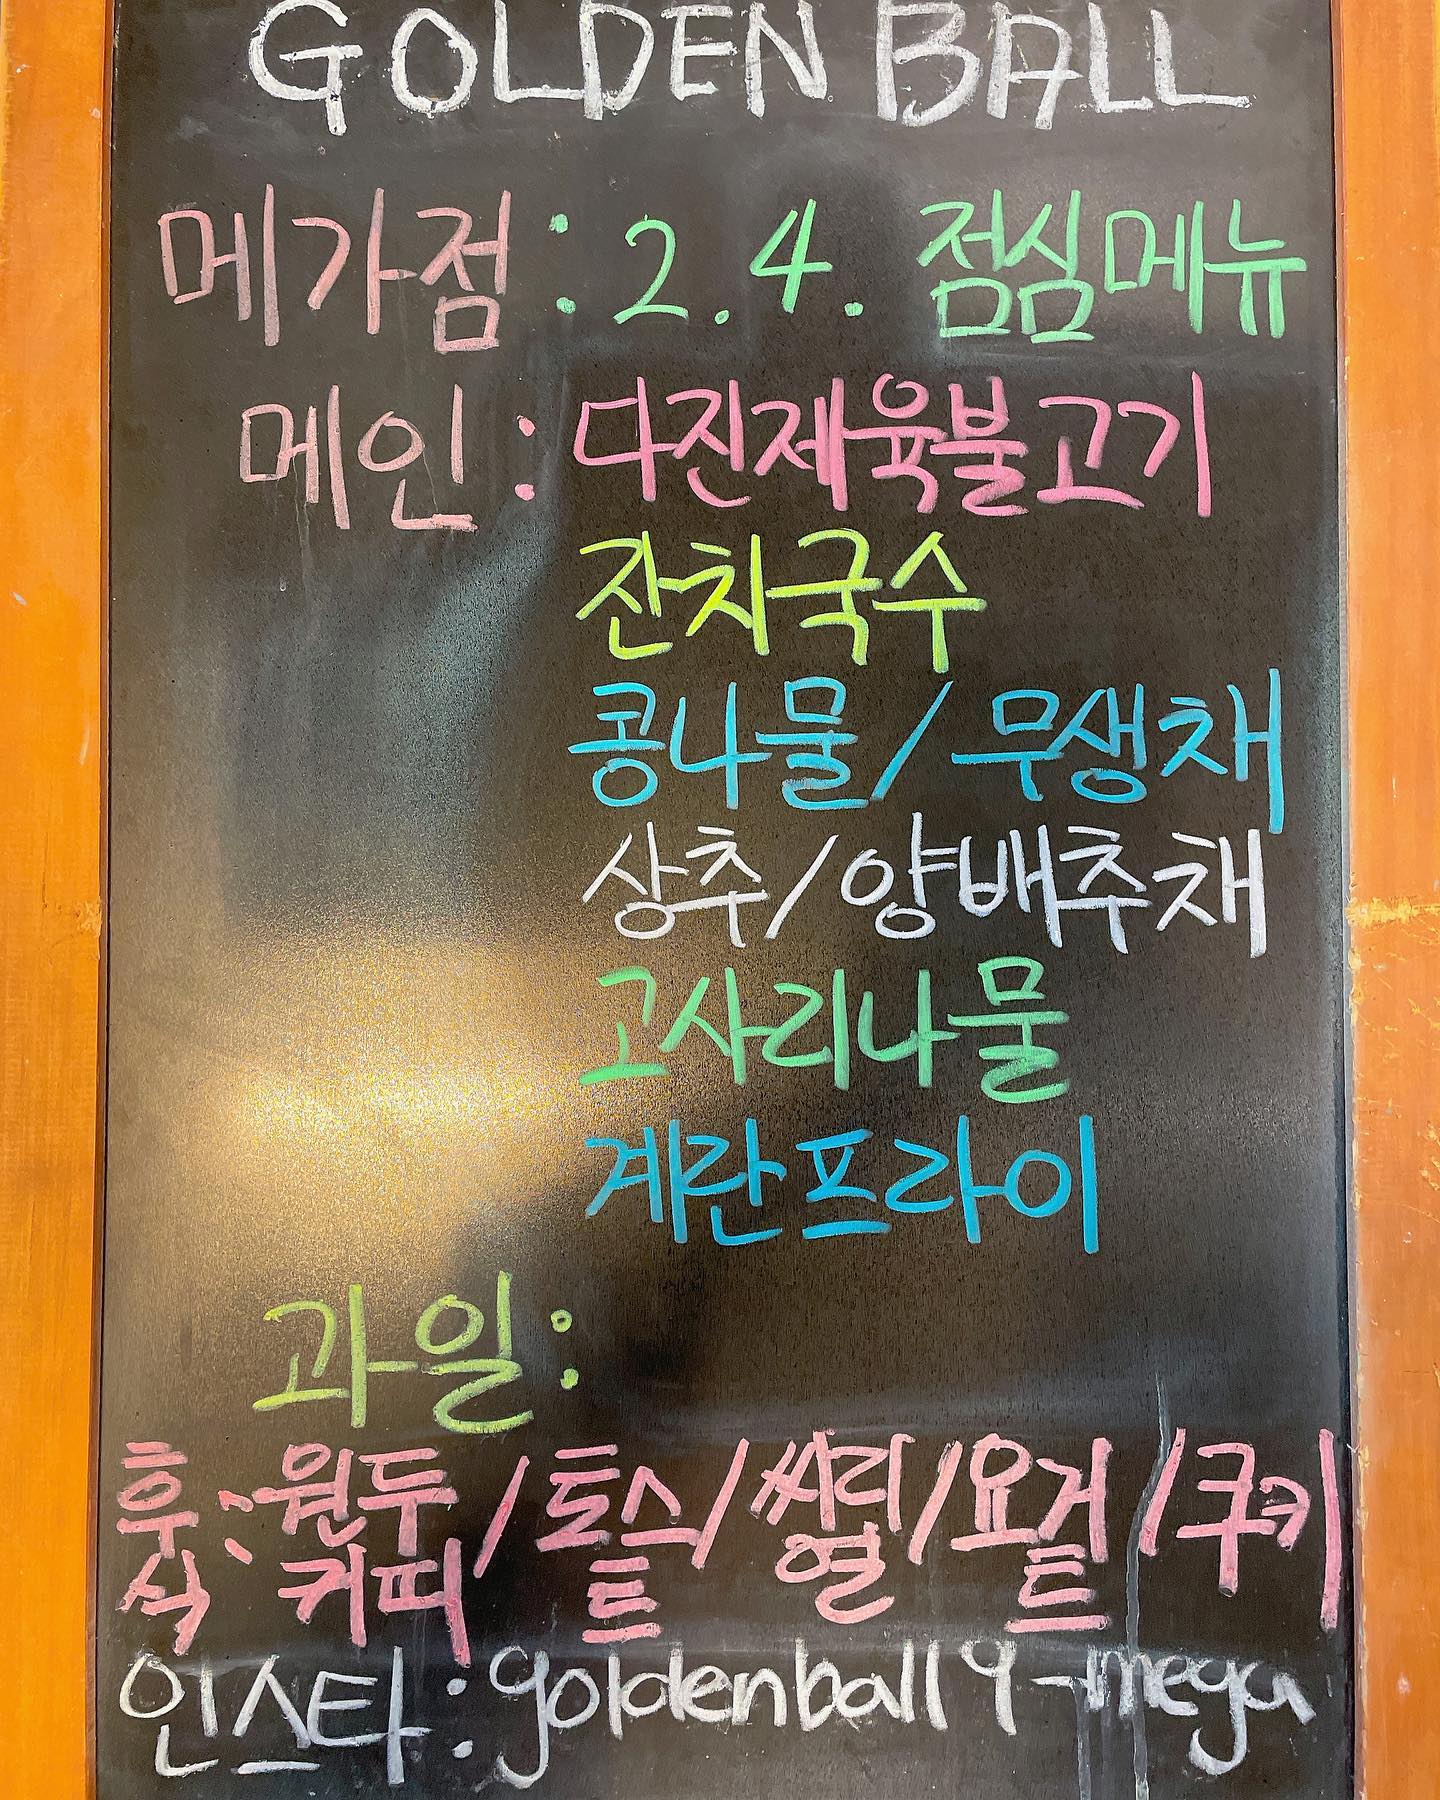 GOLDEN BALL
메가점 : 2.4. 점심메뉴
메인 : 다진제육불고기
잔치국수
콩나물/무생채
상추/양배추채
고사리나물
계란프라이
과일:
후식: 원두커피/토스트/씨리열/요겉트/쿠키
인스타: goldenball9-mega